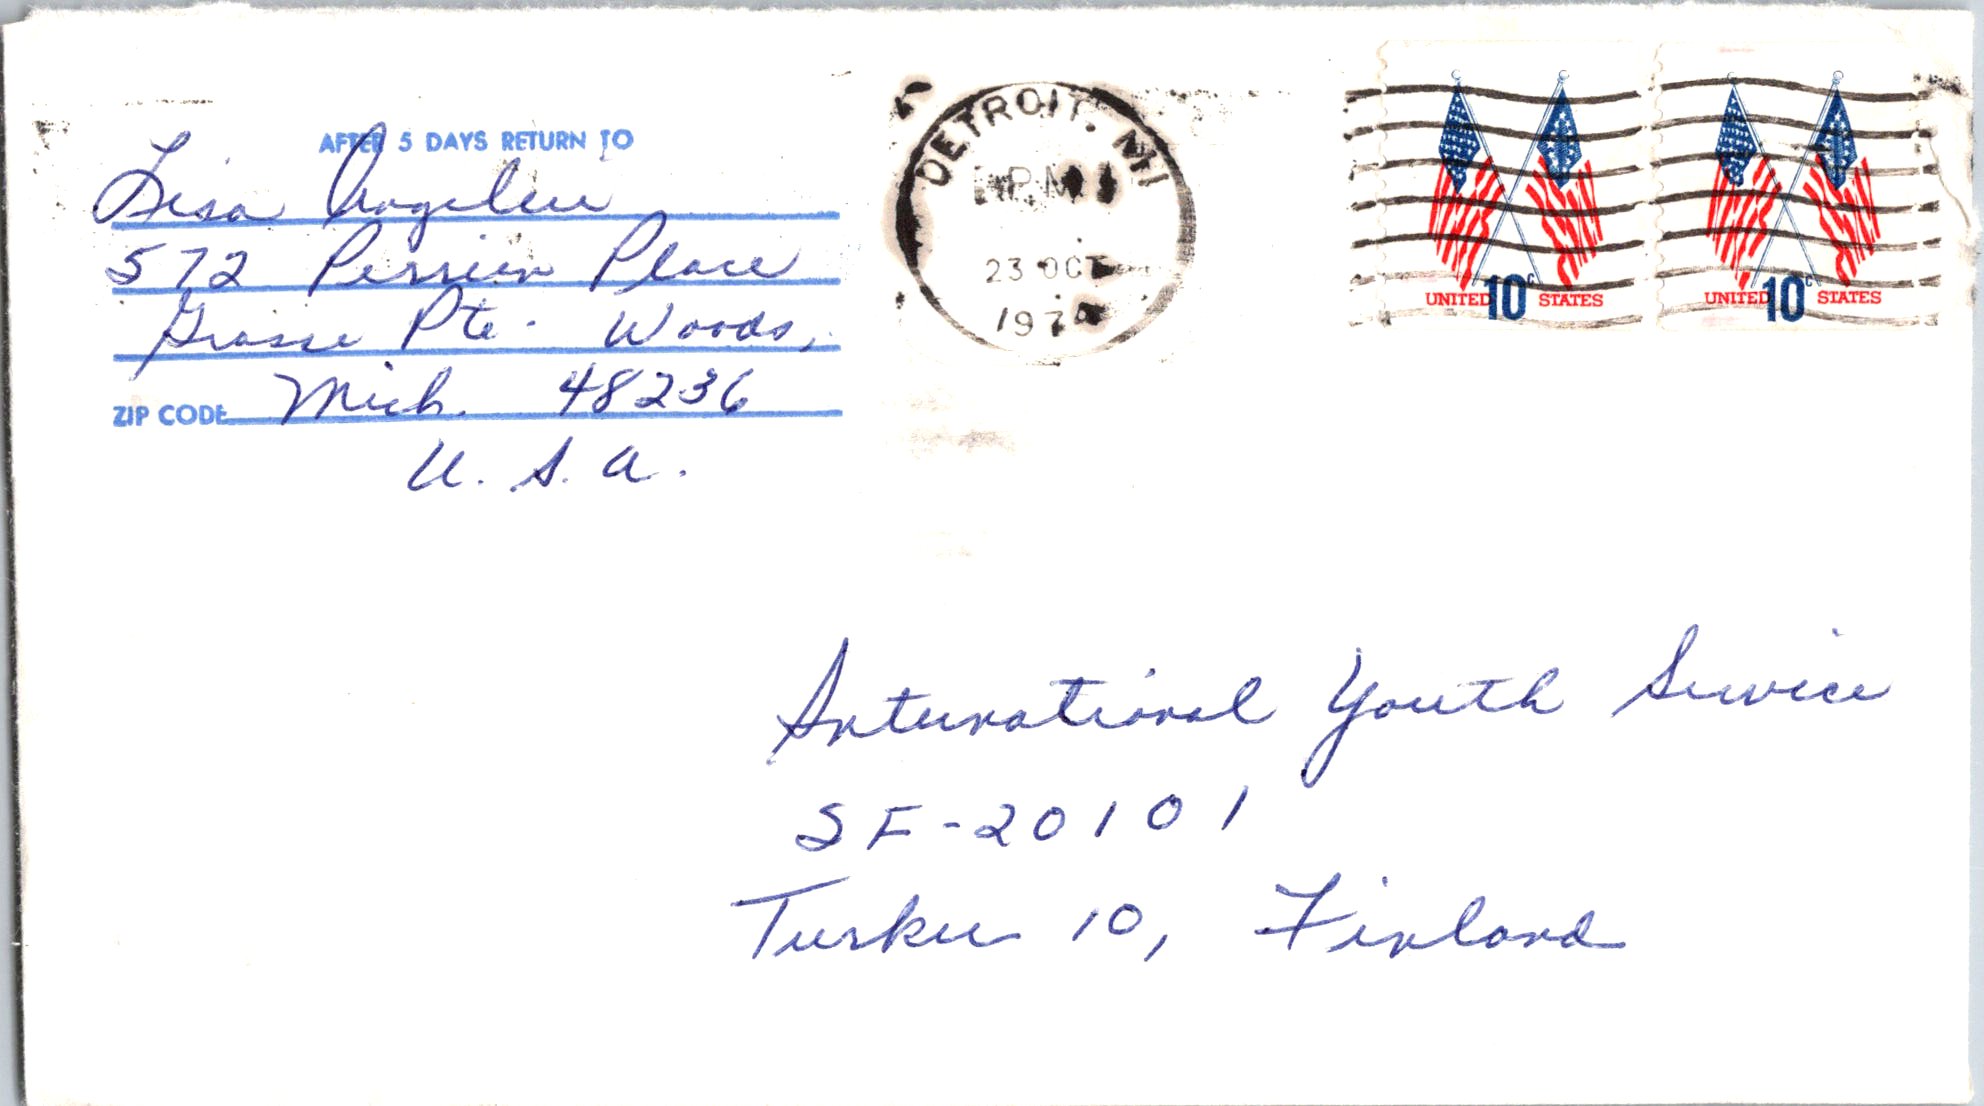 AFTER 5 DAYS RETURN TO
Lisa
572 Perrien Place
Grosse Pte. Woods,
ZIP CODE Mich. 48236
U. S. A.
DETROIT, MI
PM
23 OCT
1974
UNITED 10c STATES
UNITED 10c STATES
International Youth Service
SF-20101
Turku 10, Finland